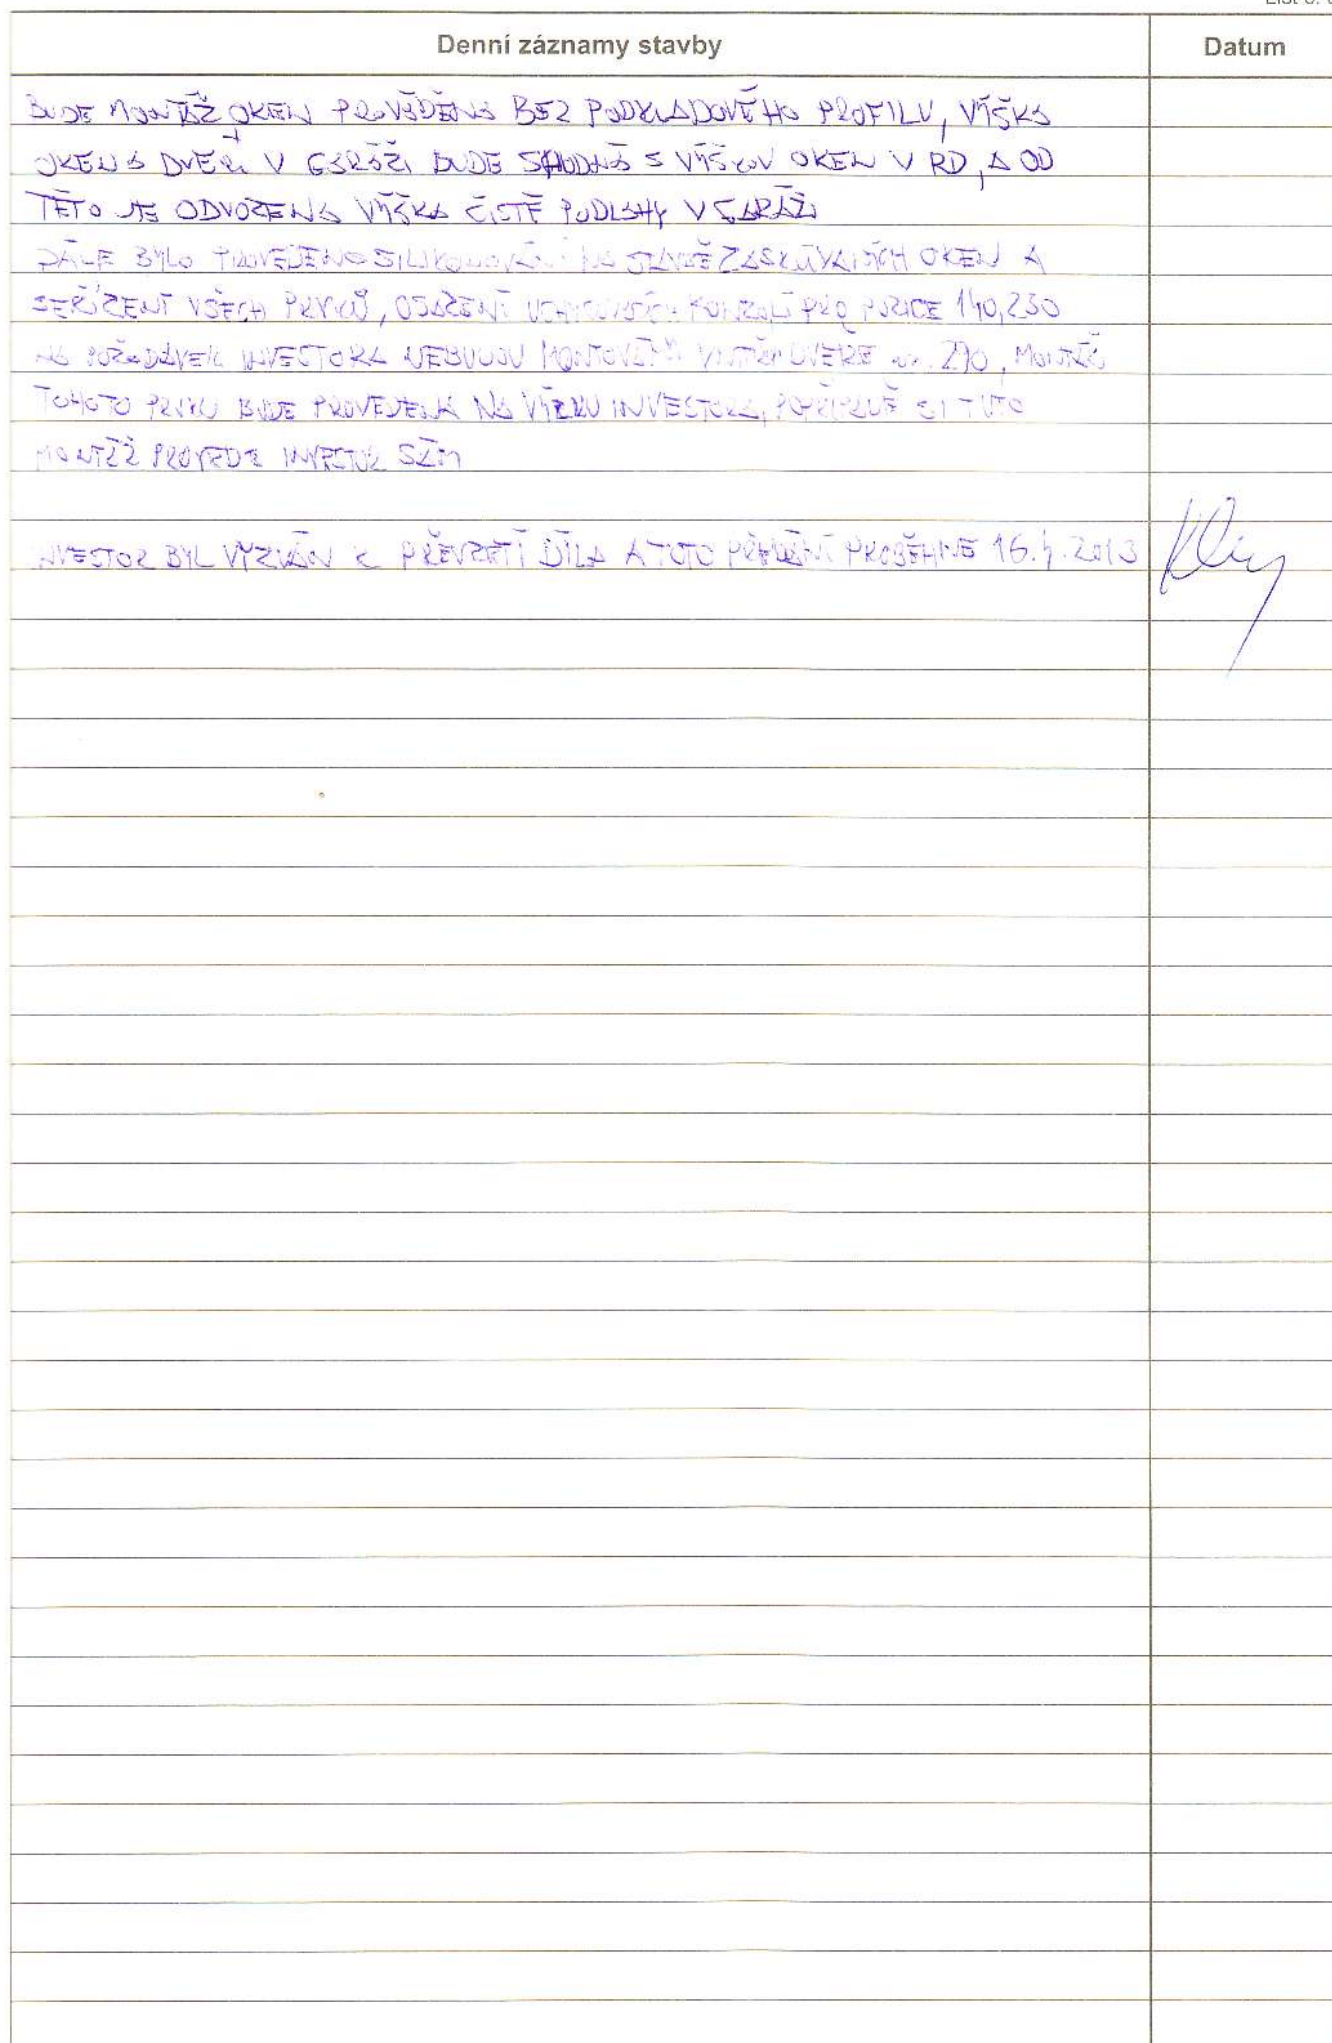 Denní záznamy stavby
Datum
BUDE MONTÁŽ OKEN PROVÁDĚNA BEZ PODKLADOVÉHO PROFILU, VÝŠKA
OKEN A DVEŘÍ V GARÁŽI BUDE SHODNÁ S VÝŠKOU OKEN V RD, A OD
TÉTO JE ODVOZENA VÝŠKA ČISTÉ PODLAHY V GARÁŽI
DÁLE BYLO PROVEDENO SILIKONOVÁNÍ NA STAVBĚ ZASKLÍVANÝCH OKEN A
SEŘÍZENÍ VŠECH PRVKŮ, OSAZENÍ KONZOLÍ PRO POZICE 140, 230
NA POŽADAVEK INVESTORA NEBUDOU MONTOVÁNY VNITŘNÍ DVEŘE 290, MONTÁŽ
TOHOTO PRVKU BUDE PROVEDENA NA VÝZVU INVESTORA, POPŘÍPADĚ SI TUTO
MONTÁŽ PROVEDE INVESTOR SÁM
INVESTOR BYL VYZVÁN K PŘEVZETÍ DÍLA A TOTO PŘEVZETÍ PROBĚHNE 16.4.2013